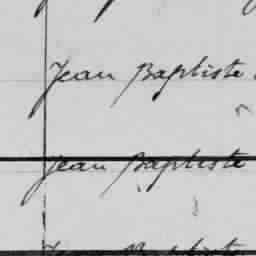 Jean Baptiste
Jean Baptiste